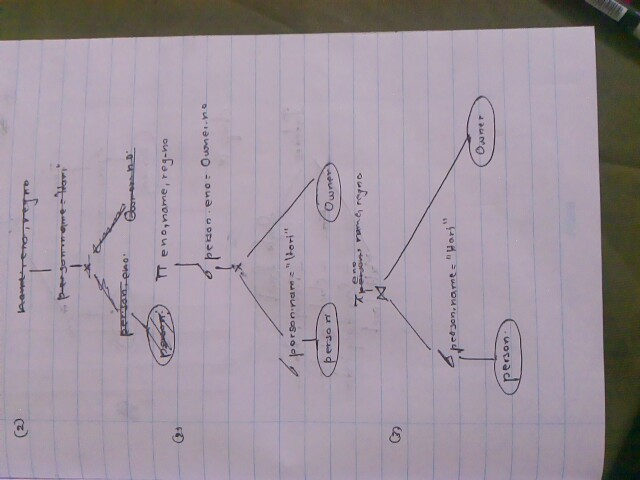 (2)
name, eno, regno
person.name = "Hari"
x
person.eno.
(2)
π eno, name, reg-no
σ person.eno = Owner.no
x
σ person.nam = "Hari"
person Owner
(3)
π eno, name, regno
⋈
σ person.name = "Hari"
person.
Owner